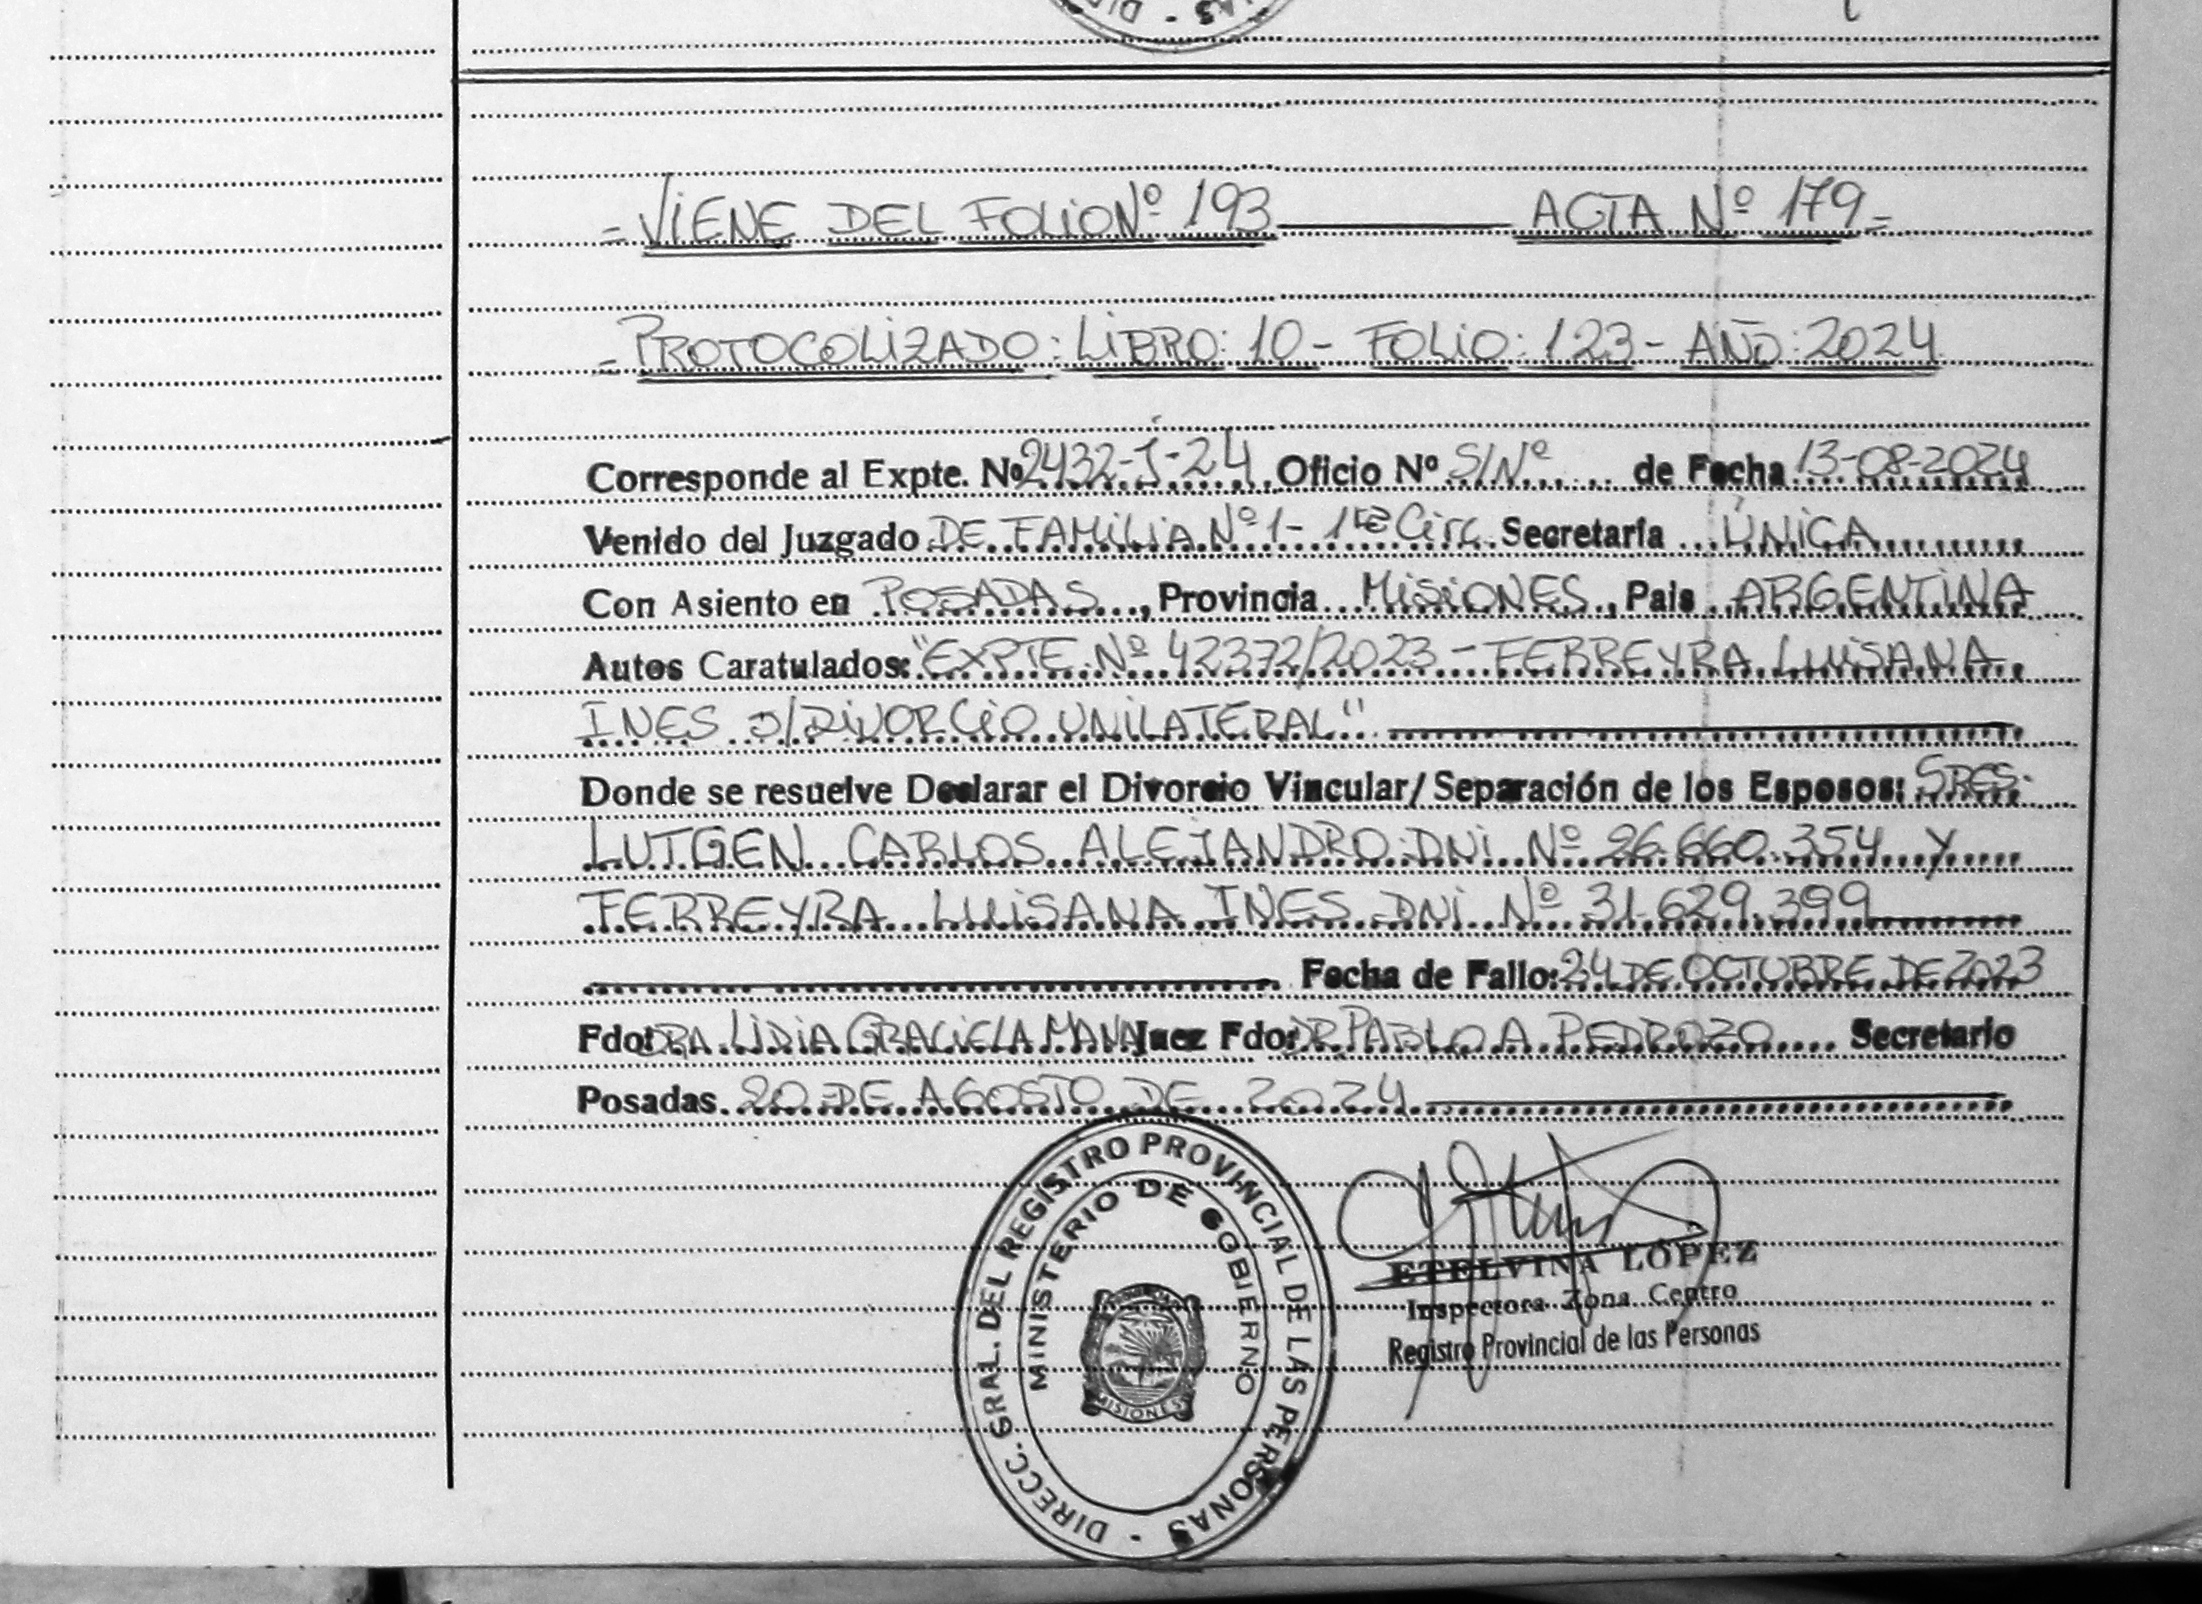 - DIRECC. GRAL. DEL REGISTRO PROVINCIAL DE LAS PERSONAS
= VIENE DEL FOLIO Nº 193 ACTA Nº 179 =
= PROTOCOLIZADO: LIBRO: 10 - FOLIO: 123 - AÑO: 2024
Corresponde al Expte. Nº 2432-J-24 Oficio Nº S/Nº de Fecha 13-08-2024
Venido del Juzgado DE FAMILIA Nº 1 - 1ra Circ. Secretaría ÚNICA
Con Asiento en POSADAS, Provincia MISIONES, Pais ARGENTINA
Autos Caratulados: "EXPTE. Nº 42372/2023 - FERREYRA LUISANA
INES S/DIVORCIO UNILATERAL"
Donde se resuelve Declarar el Divorcio Vincular/Separación de los Esposos: SRES.
LUTGEN CARLOS ALEJANDRO DNI Nº 26.660.354 Y
FERREYRA LUISANA INES DNI Nº 31.629.399
Fecha de Fallo: 24 DE OCTUBRE DE 2023
Fdo: DRA. LIDIA GRACIELA MANA Juez Fdo: DR. PABLO A. PEDROZO Secretario
Posadas 20 DE AGOSTO DE 2024
DIRECC. GRAL. DEL REGISTRO PROVINCIAL DE LAS PERSONAS -
MINISTERIO DE GOBIERNO
MISIONES
ETELVINA LÓPEZ
Inspectora Zona Centro
Registro Provincial de las Personas